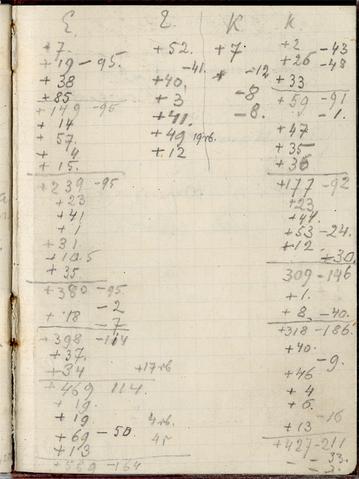 E. E K K
+7. +52. +7. +2 -43
+49 -95. -41. -12 +26 -48
+38 +40, -8 +33
+85 +3 -8. +59 -91
+149 -95 +41. -1.
+14 +49 +47
+57. +12 +35
+4 +36
+15. +177 -92
+239 -95 +23
+23 +44.
+41 +53 -24.
+1 +12
+31. +30.
+10.5 309 -146
+35. +1.
+380 -95 +8, -40.
-2 +318 -186.
+18 -7 +40.
+398 -114 -9.
+37. +46
+34 +4
+469 114. +6.
+19. -16
+19 +13
+69 -50 +427 -211
+13 -33.
+589 -164